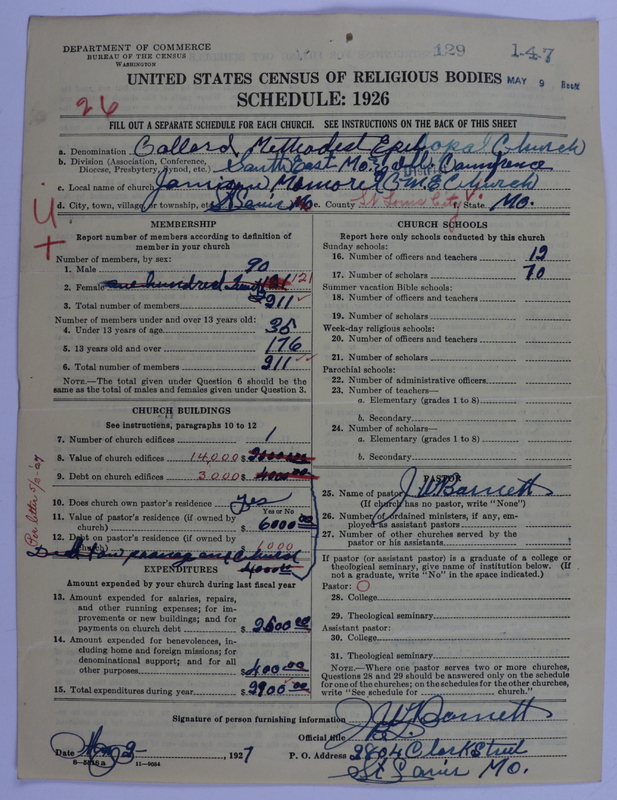 DEPARTMENT OF COMMERCE
BUREAU OF THE CENSUS
WASHINGTON
129
1-47
UNITED STATES CENSUS OF RELIGIOUS BODIES
MAY 9
SCHEDULE: 1926
26
FILL OUT A SEPARATE SCHEDULE FOR EACH CHURCH. SEE INSTRUCTIONS ON THE BACK OF THIS SHEET
a. Denomination Collored Methodist Episcopal Church
b. Division (Association, Conference, Diocese, Presbytery, Synod, etc.) South East Mo. & Ill. Conference
c. Local name of church Jamison Memorel C.M.E. Church
d. City, town, village, or township, etc. St Louis Mo e. County St Louis City f. State Mo.
MEMBERSHIP
Report number of members according to definition of
member in your church
Number of members, by sex:
1. Male 90
2. Female one hundred 121 121
3. Total number of members 211
Number of members under and over 13 years old:
4. Under 13 years of age 35
5. 13 years old and over 176
6. Total number of members 211
NOTE.—The total given under Question 6 should be the
same as the total of males and females given under Question 3.
CHURCH BUILDINGS
See instructions, paragraphs 10 to 12
7. Number of church edifices 1
8. Value of church edifices 14,000 $
9. Debt on church edifices 3000 $ 4000 00
Per letter 5/2-27
10. Does church own pastor's residence yes
Yes or No
11. Value of pastor's residence (if owned by
church) $ 6000 00
12. Debt on pastor's residence (if owned by
church) 1000
4000 00
EXPENDITURES
Amount expended by your church during last fiscal year
13. Amount expended for salaries, repairs,
and other running expenses; for im-
provements or new buildings; and for
payments on church debt $ 2500 00
14. Amount expended for benevolences, in-
cluding home and foreign missions; for
denominational support; and for all
other purposes $ 400 00
15. Total expenditures during year $ 2900 00
CHURCH SCHOOLS
Report here only schools conducted by this church
Sunday schools:
16. Number of officers and teachers 12
17. Number of scholars 70
Summer vacation Bible schools:
18. Number of officers and teachers
19. Number of scholars
Week-day religious schools:
20. Number of officers and teachers
21. Number of scholars
Parochial schools:
22. Number of administrative officers
23. Number of teachers—
a. Elementary (grades 1 to 8)
b. Secondary
24. Number of scholars—
a. Elementary (grades 1 to 8)
b. Secondary
PASTOR
25. Name of pastor J W Barnett
(If church has no pastor, write "None")
26. Number of ordained ministers, if any, em-
ployed as assistant pastors
27. Number of other churches served by the
pastor or his assistants
If pastor (or assistant pastor) is a graduate of a college or
theological seminary, give name of institution below. (If
not a graduate, write "No" in the space indicated.)
Pastor: O
28. College
29. Theological seminary
Assistant pastor:
30. College
31. Theological seminary
NOTE.—Where one pastor serves two or more churches,
Questions 28 and 29 should be answered only on the schedule
for one of the churches; on the schedules for the other churches,
write "See schedule for church."
Signature of person furnishing information J W Barnett
Official title
Date 2, 1927
P. O. Address 2804 Clark Street
St Louis Mo.
8-5818 a 11-9034